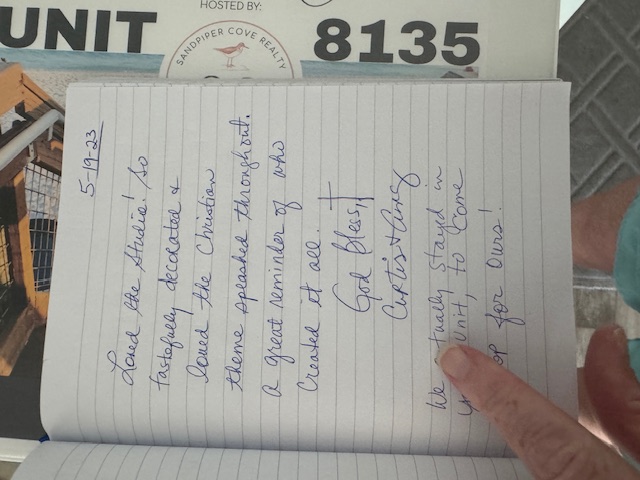 UNIT 8135
HOSTED BY:
SANDPIPER COVE REALTY
5-19-23
Loved the Studio! So
tastefully decorated &
loved the Christian
theme splashed throughout.
A great reminder of who
Created it all.
God Bless,
Curtis &
We actually stayed in
unit, to come
for Ours!